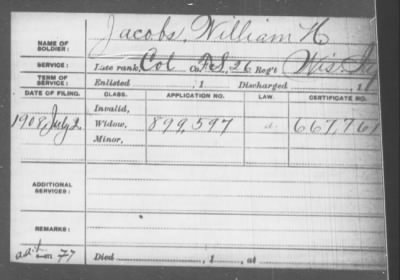 Jacobs, William H
NAME OF SOLDIER:
SERVICE: Late rank, Col Co. F&S, 26 Reg't Wis. Inf
TERM OF SERVICE: Enlisted , 1 Discharged , 1
DATE OF FILING. CLASS. APPLICATION NO. LAW. CERTIFICATE NO.
Invalid,
1908 July 2 Widow, 899,597 667,761
Minor,
ADDITIONAL SERVICES:
REMARKS:
77 Died , 1 , at